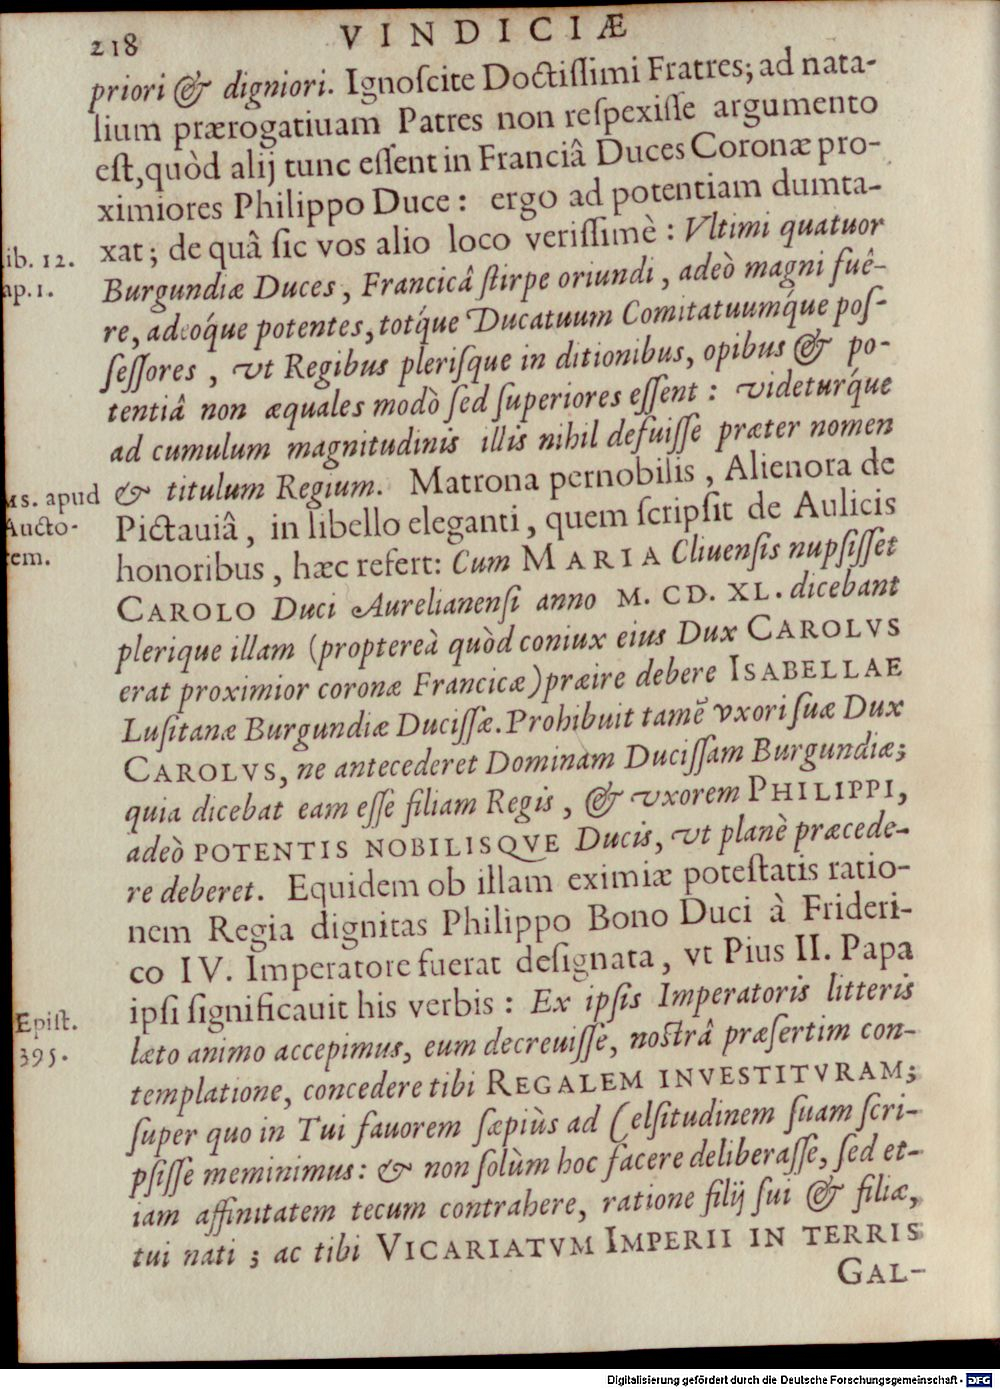 218 VINDICIÆ
priori & digniori. Ignoſcite Doctiſſimi Fratres; ad nata-
lium prærogatiuam Patres non reſpexiſſe argumento
eſt, quòd alij tunc eſſent in Franciâ Duces Coronæ pro-
ximiores Philippo Duce: ergo ad potentiam dumta-
xat; de quâ ſic vos alio loco veriſſimè: Vltimi quatuor
ib. 12.
ap. 1.
Burgundiæ Duces, Francicâ ſtirpe oriundi, adeò magni fuê-
re, adeoq́ue potentes, totq́ue Ducatuum Comitatuumq́ue poſ-
ſeſſores, vt Regibus pleriſque in ditionibus, opibus & po-
tentiâ non æquales modò ſed ſuperiores eſſent: videturq́ue
ad cumulum magnitudinis illis nihil defuiſſe præter nomen
& titulum Regium. Matrona pernobilis, Alienora de
Ms. apud
Aucto-
rem.
Pictauiâ, in libello eleganti, quem ſcripſit de Aulicis
honoribus, hæc refert: Cum MARIA Cliuenſis nupſiſſet
CAROLO Duci Aurelianenſi anno M. CD. XL. dicebant
plerique illam (proptereà quòd coniux eius Dux CAROLVS
erat proximior coronæ Francicæ) præire debere ISABELLAE
Luſitanæ Burgundiæ Duciſſæ. Prohibuit tamē vxori ſuæ Dux
CAROLVS, ne antecederet Dominam Duciſſam Burgundiæ;
quia dicebat eam eſſe filiam Regis, & vxorem PHILIPPI,
adeò POTENTIS NOBILISQVE Ducis, vt planè præcede-
re deberet. Equidem ob illam eximiæ poteſtatis ratio-
nem Regia dignitas Philippo Bono Duci à Frideri-
co IV. Imperatore fuerat deſignata, vt Pius II. Papa
ipſi ſignificauit his verbis: Ex ipſis Imperatoris litteris
Epiſt.
395.
læto animo accepimus, eum decreuiſſe, noſtrâ præſertim con-
templatione, concedere tibi REGALEM INVESTITVRAM;
ſuper quo in Tui fauorem ſæpiùs ad Celſitudinem ſuam ſcri-
pſiſſe meminimus: & non ſolùm hoc facere deliberaſſe, ſed et-
iam affinitatem tecum contrahere, ratione filij ſui & filiæ,
tui nati; ac tibi VICARIATVM IMPERII IN TERRIS
GAL-
Digitalisierung gefördert durch die Deutsche Forschungsgemeinschaft - DFG